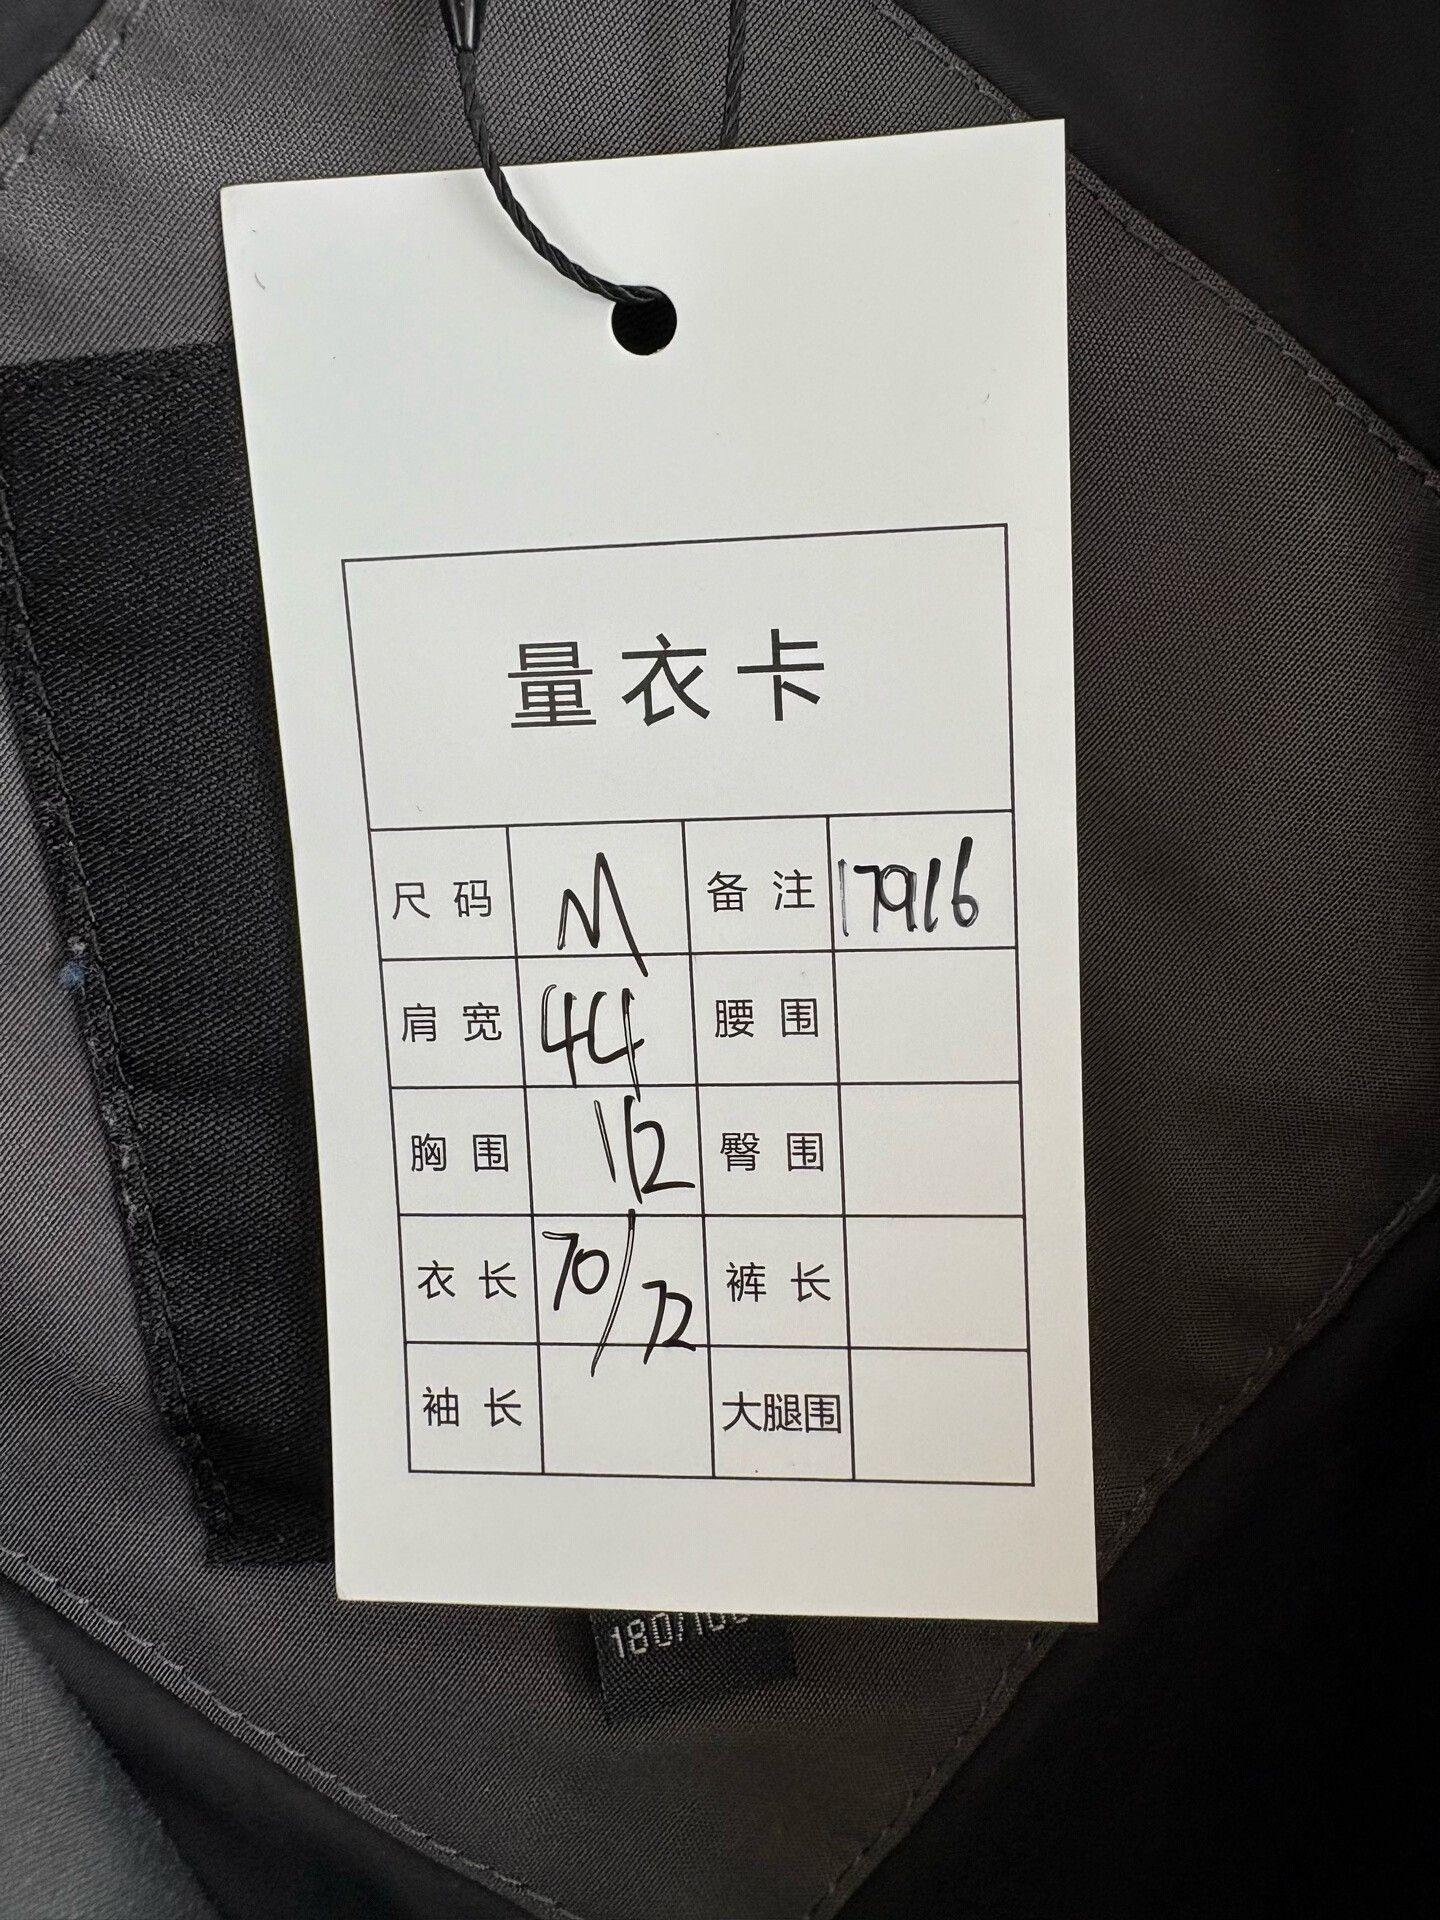 量衣卡
尺码 M 备注 17916
肩宽 44 腰围
胸围 112 臀围
衣长 70/72 裤长
袖长 大腿围